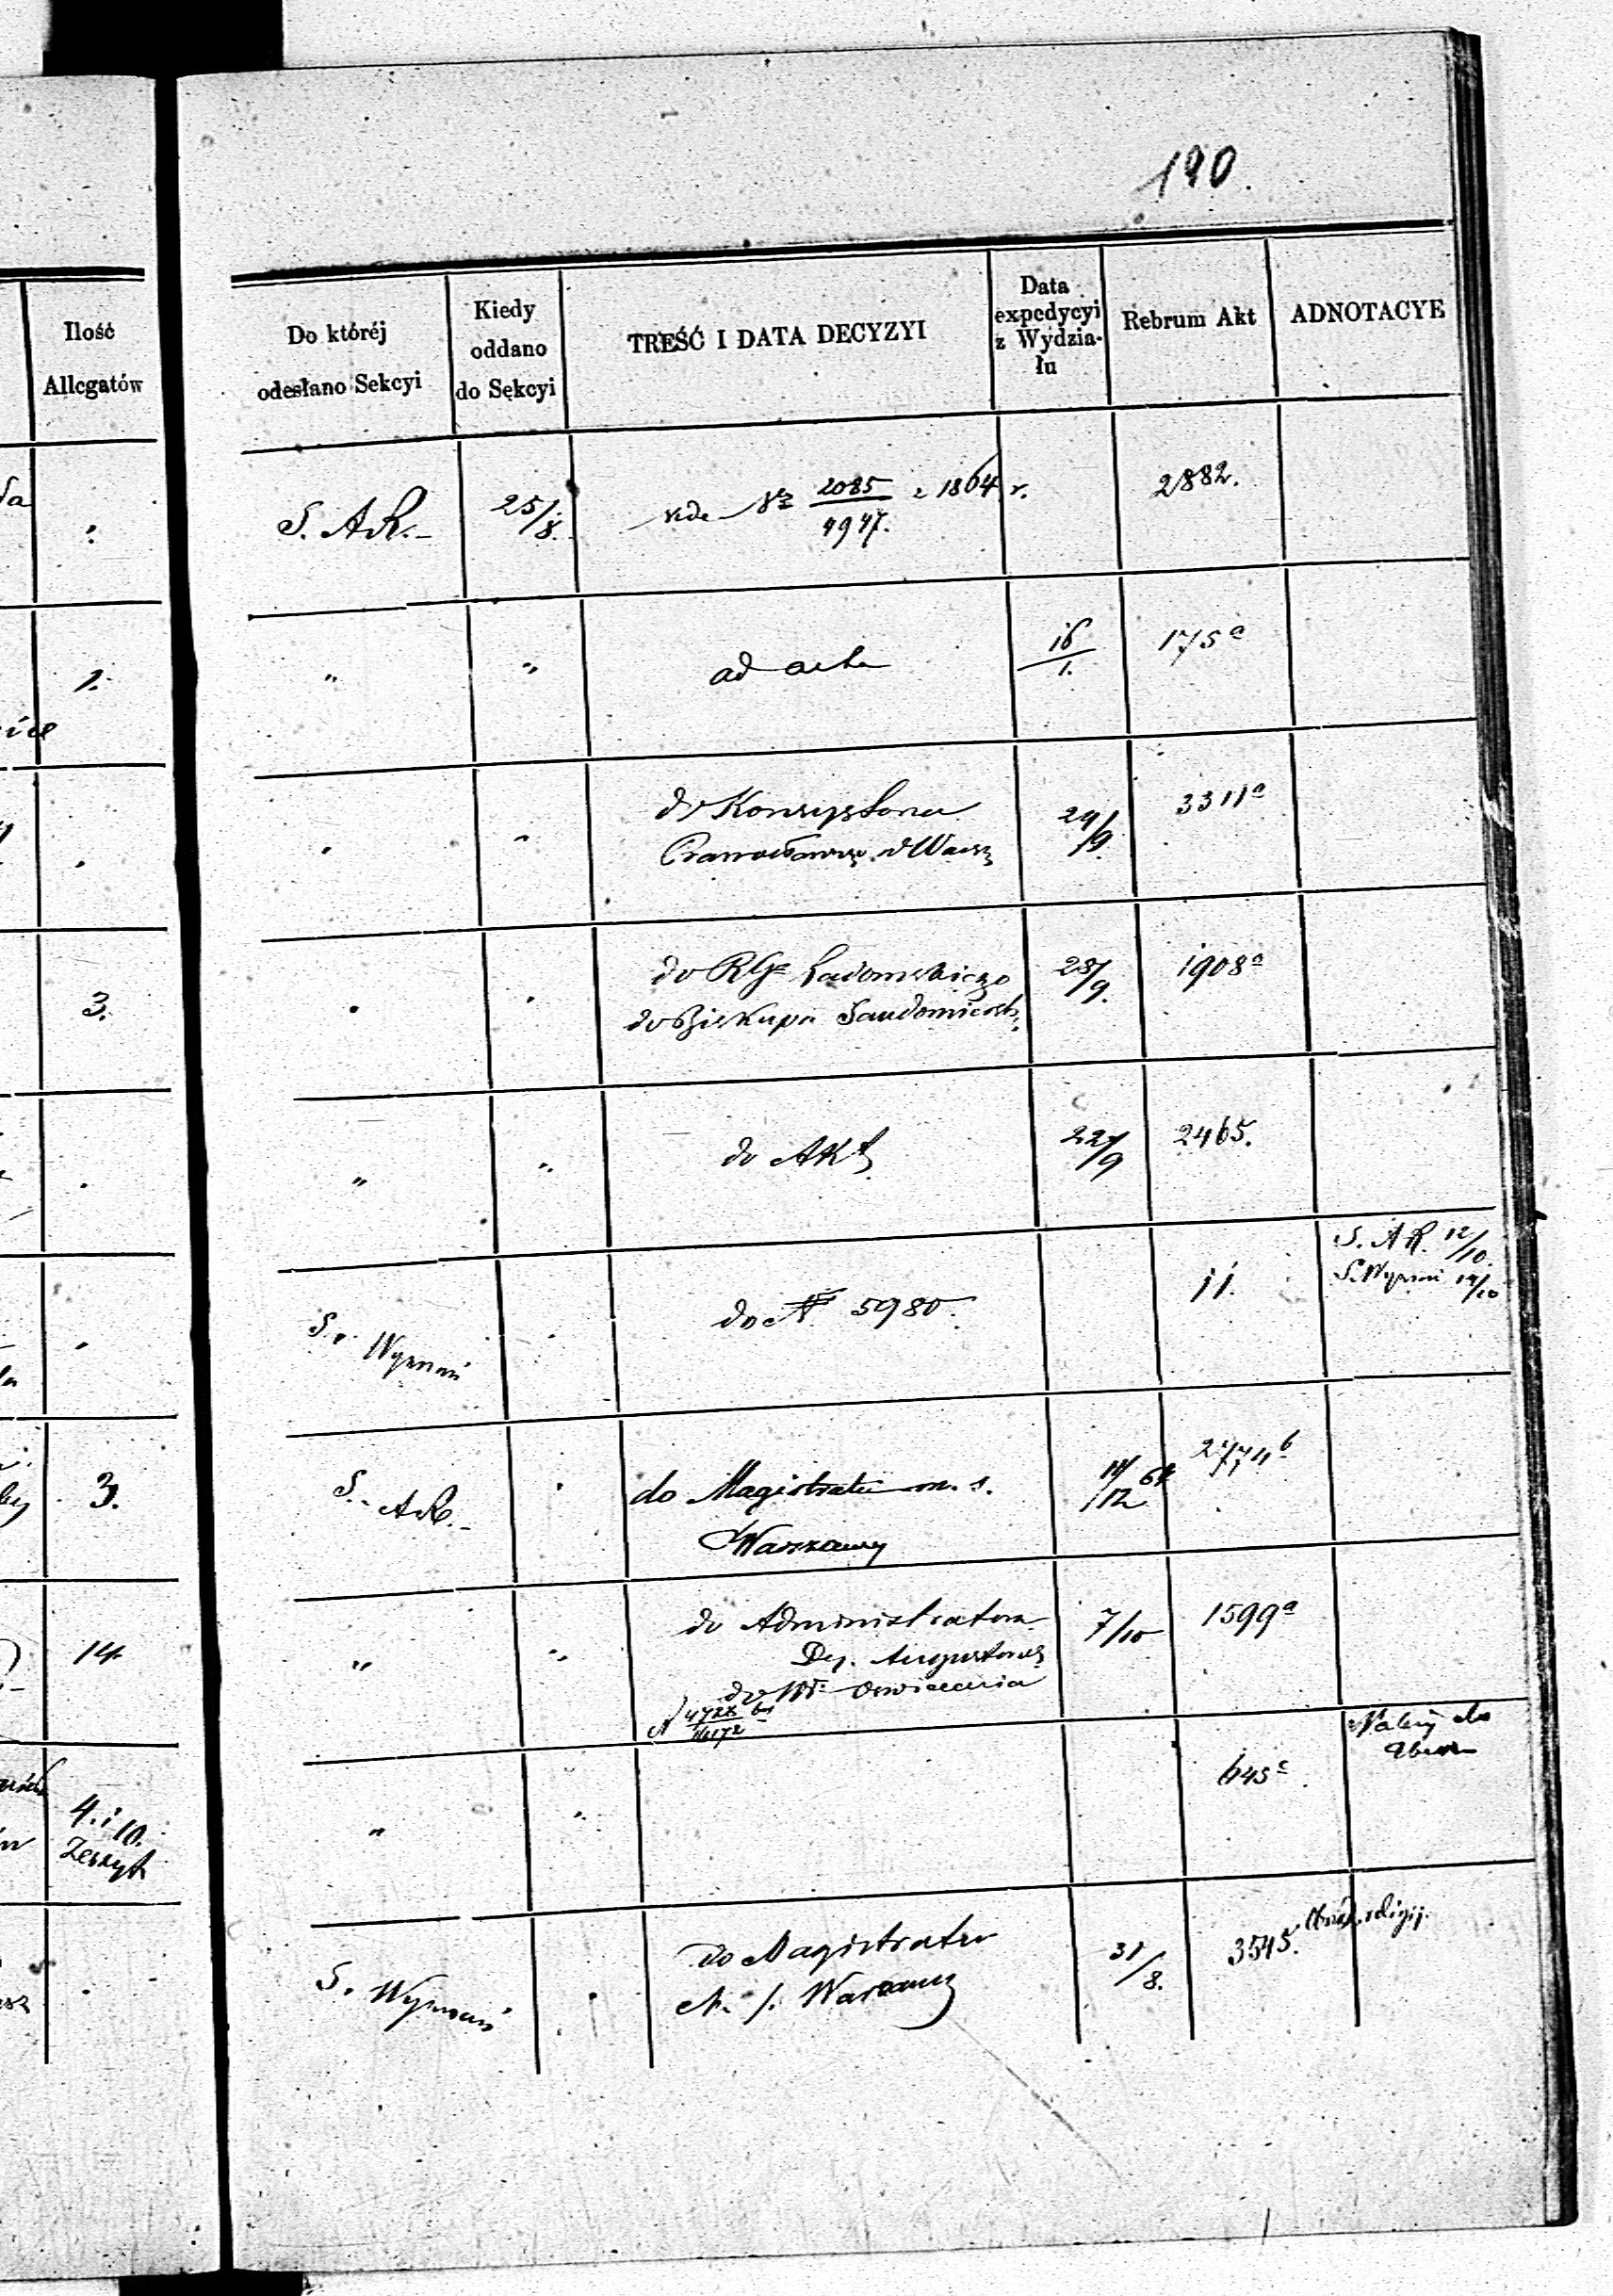 190.
Ilość
Allegatów
Do któréj
odesłano Sekcyi
Kiedy
oddano
do Sekcyi
TREŚĆ I DATA DECYZYI
Data
expedycyi
z Wydzia-
łu
Rebrum Akt
ADNOTACYE
S. AR.
25/8.
vide Nr 2085/4947. z 1864 r.
2882.
1.
"
"
ad acta
16/1.
175a
do Konsystorza
Prawosławn. w Warsz
29/9.
3311a
3.
do RGo Radomskiego
do Biskupa Sandomiersk.
28/9.
1908a
"
"
do Akt
22/9
2465.
S. Wyznań
do N 5980.
11.
S. AR. 12/10.
S. Wyznań 14/10
3.
S. AR.
do Magistratu m. s.
Warszawy
12
14
"
"
do Administratora
Dy. Augustows
do Wo Oświecenia
7/10
1599a
4. i 10.
Zeszyt
"
"
645c
Należy do
S. Wyznań
do Magistratu
M. S. Warszawy
31/8.
3545.